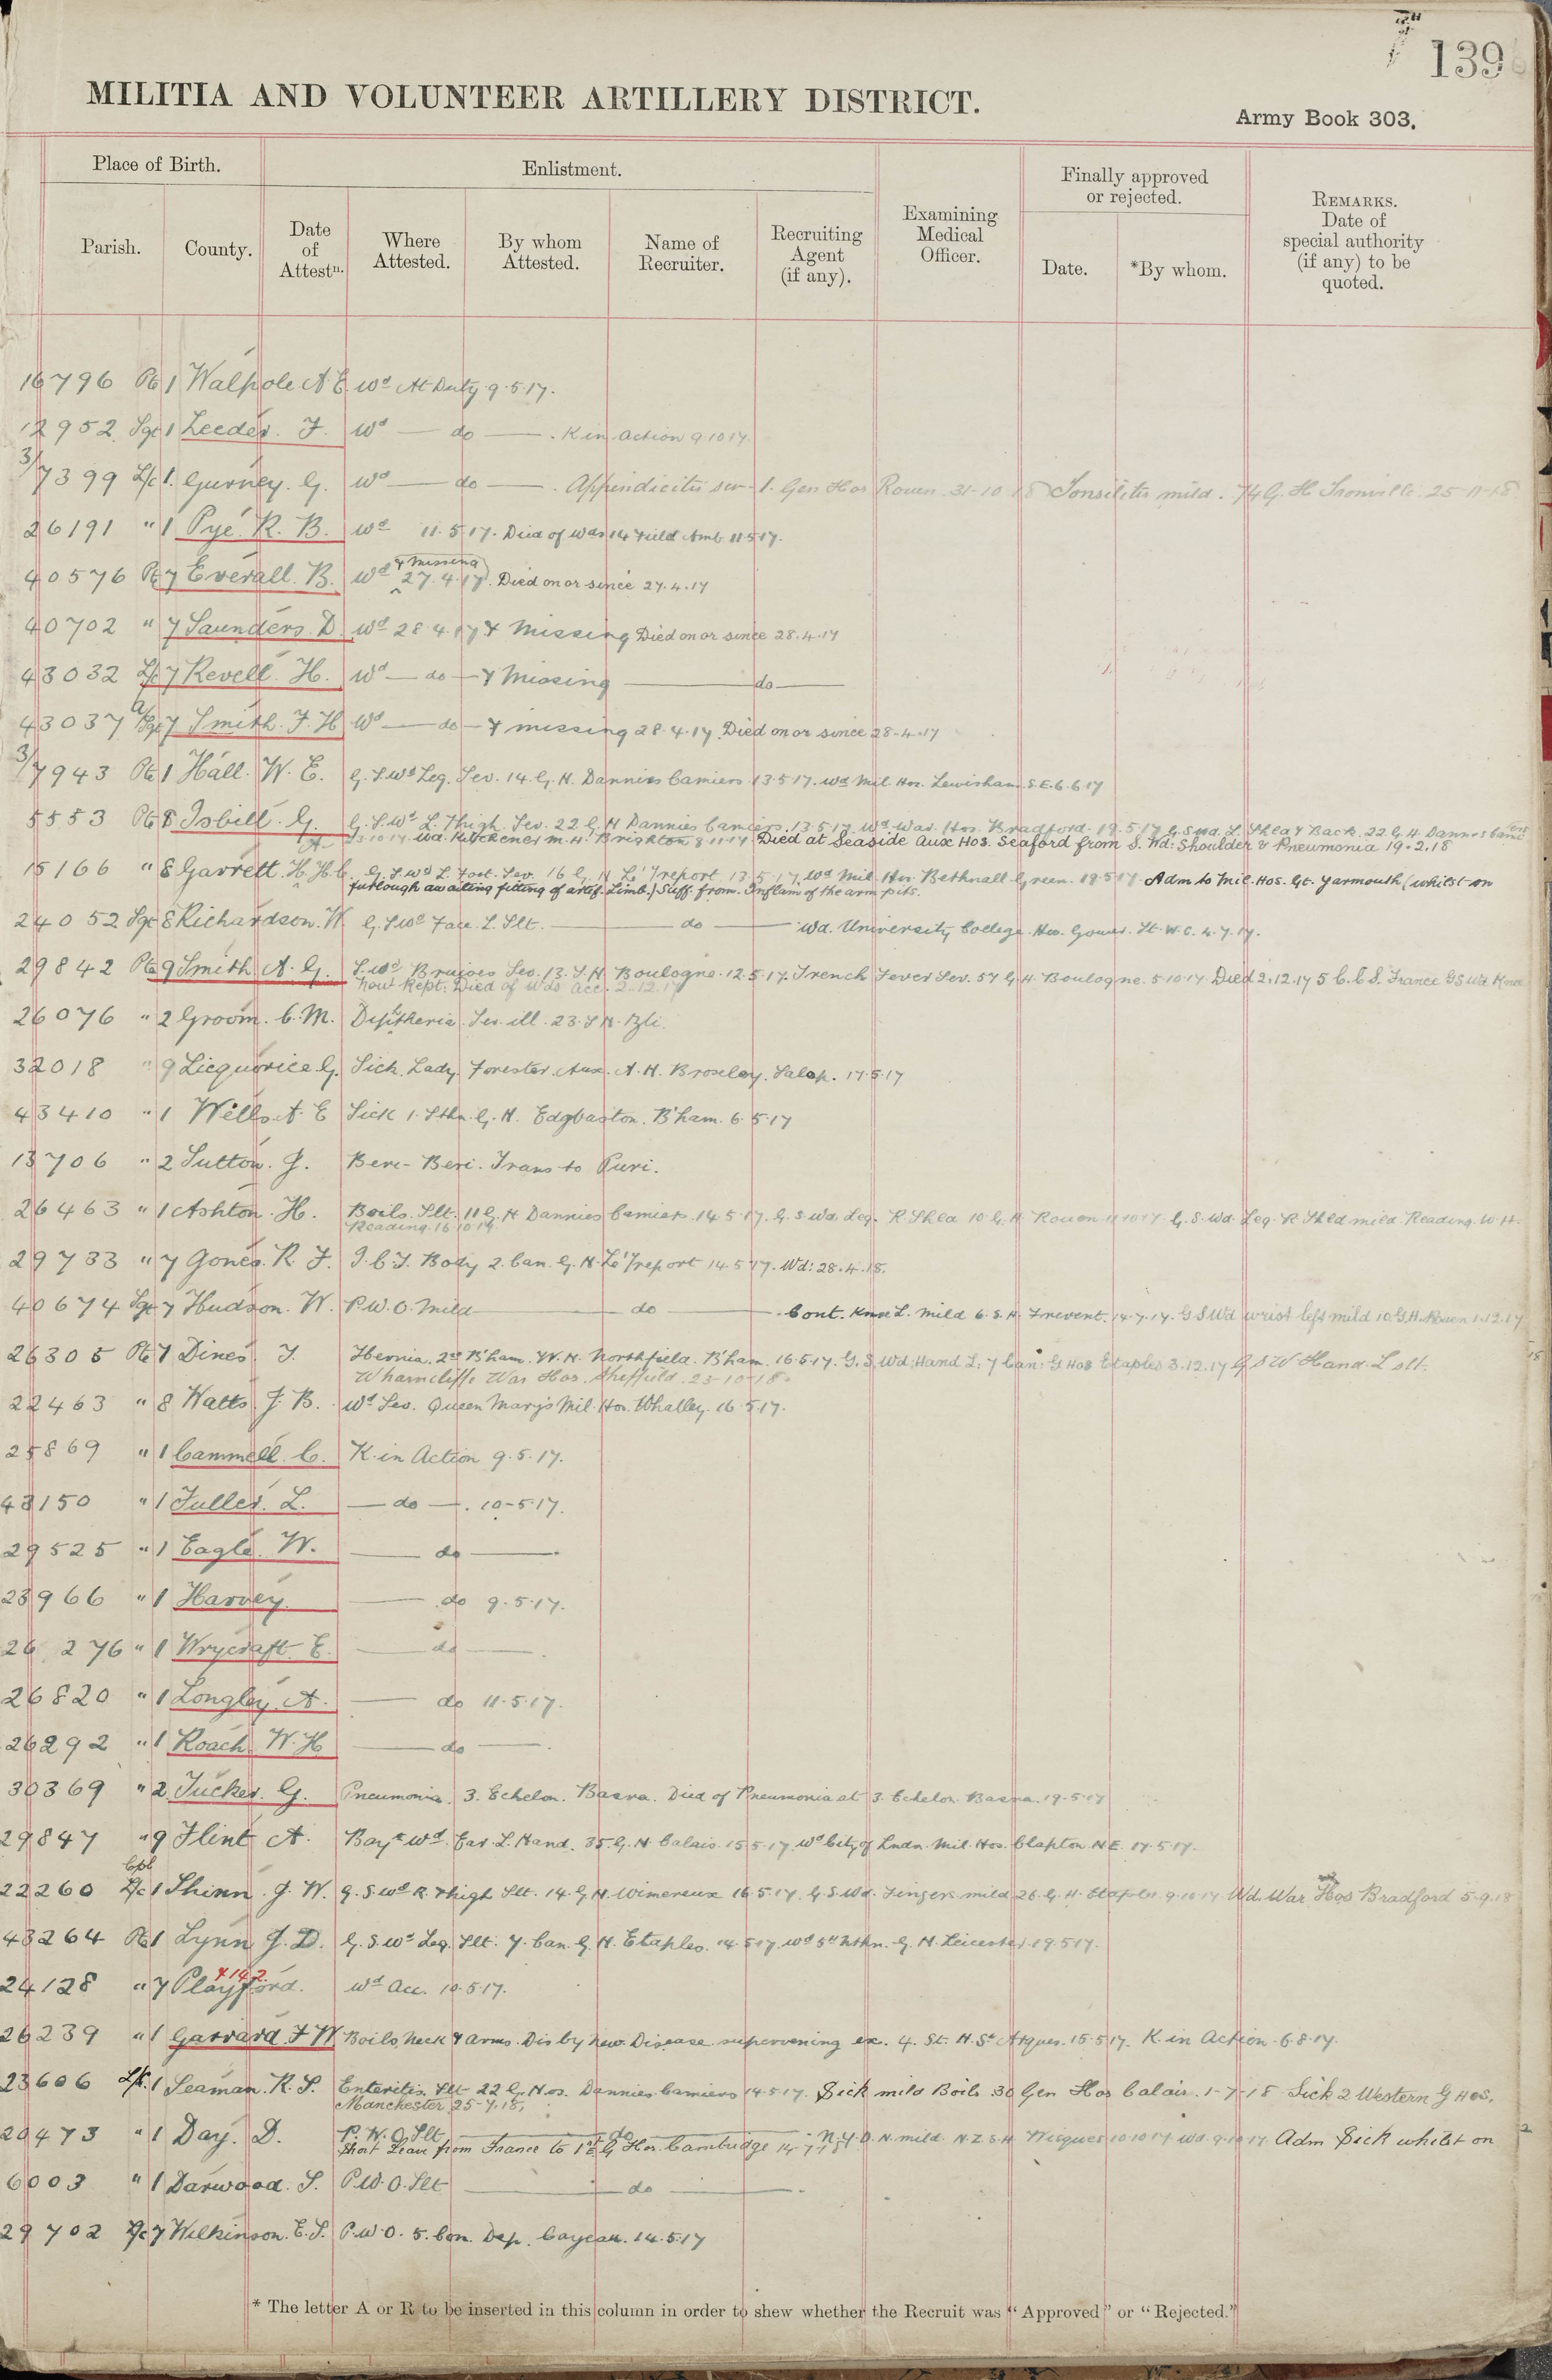 139
MILITIA AND VOLUNTEER ARTILLERY DISTRICT.
Army Book 303.
Place of Birth.
Enlistment.
Finally approved or rejected.
Parish.
County.
Date of Attestn.
Where Attested.
By whom Attested.
Name of Recruiter.
Recruiting Agent (if any).
Examining Medical Officer.
Date.
*By whom.
REMARKS. Date of special authority (if any) to be quoted.
16796 Pte 1 Walpole A E Wd At Duty 9.5.17.
12952 Sgt 1 Leeder. F. Wd — do — . K in action 9.10.17
3/7399 L/c 1. Gurney. G. Wd — do — . Appendicitis sev 1. Gen Hos Rouen 31-10-18 Tonsilitis mild. 74 G. H Tronville 25-11-18
26191 " 1 Pye. R. B. Wd 11.5.17. Died of wds 14 Field Amb 11.5.17.
40576 Pte 7 Everall. B. Wd & missing 27.4.17. Died on or since 27.4.17
40702 " 7 Saunders. D Wd 28.4.17 & Missing Died on or since 28.4.17
43032 L/c 7 Revell. H. Wd — do — & Missing — do —
43037 A/Sgt 7 Smith. F. H Wd — do — & missing 28.4.17. Died on or since 28.4.17
3/7943 Pte 1 Hall. W. E. G. S wd Leg. Sev. 14. G. H. Dannies Camiers 13.5.17. Wd Mil. Hos. Lewisham. S.E. 6.6.17
5553 Pte 8 Isbill. G. G. S. Wd L. Thigh. Sev. 22 G H Dannies Camiers. 13.5.17. Wd War. Hos. Bradford. 19.5.17 G.S wd. L. Shldr & Back. 22 G. H. Dannes Camiers
23.10.17 Wd. Kitchener M. H. Brighton 8.11.17 Died at Seaside Aux Hos. Seaford from S. Wd: Shoulder & Pneumonia 19.2.18
15166 " 8 Garrett. H. H. C. G. S wd L. Foot. Sev. 16 G. H Le Treport 13.5.17. Wd Mil. Hos. Bethnall Green. 19.5.17. Adm to Mil. Hos. Gt. Yarmouth (whilst on
furlough awaiting fitting of artif. Limb.) Suff. from. Inflam of the arm pits.
24052 Sgt 8 Richardson. W. G. S wd Face. L Slt. — do — Wd. University College. Hos. Gower. St. W. C. 4.7.17.
29842 Pte 9 Smith. A. G. S. wd Bruises Sev. 13. S. H Boulogne. 12.5.17. Trench Fever Sev. 54 G. H. Boulogne. 5.10.17 Died 2.12.17 5 C. C. S. France GS Wd Knee
now Rept. Died of wds acc. 2.12.17
26076 " 2 Groom. C. M. Diptheria. Ser. ill. 23. S H. Bli.
32018 " 9 Licquorice G. Sick. Lady Forester. Aux. A. H. Broseley. Salop. 17.5.17
43410 " 1 Wells A. E Sick 1. Sthn. G. H. Edgbaston. B'ham. 6.5.17
13706 " 2 Sutton. J. Beri-Beri. Trans to Puri.
26463 " 1 Ashton. H. Boils. Slt. 11 G. H Dannies Camiers. 14.5.17. G. S wd. Leg. R. Shld 10. G. H Rouen 11.10.17. G. S. Wd. Leg. R Shld mild Reading. W. H.
Reading. 16.10.17.
29733 " 7 Jones. R. F. I. C. T. Body 2. Can. G. H. Le Treport 14.5.17. Wd: 28.4.18.
40674 Sgt 7 Hudson. W. P.U.O. Mild — do — Cont. Knee L. mild 6. S. H. Frevent. 14.7.17. G S Wd wrist left mild 10. G. H. Rouen 1.12.17
26305 Pte 7 Dines. T. Hernia. 2nd B'ham. W. H. Northfield. B'ham. 16.5.17. G. S. Wd: Hand L: 7 Can: G Hos Etaples 3.12.17 G S W Hand. L slt.
Wharncliffe War Hos. Sheffield. 23-10-18.
22463 " 8 Watts. J. B. Wd Sev. Queen Mary's Mil. Hos. Whalley. 16.5.17.
25869 " 1 Cammell. C. K. in Action 9.5.17.
43150 " 1 Fuller. L. — do — . 10-5.17.
29525 " 1 Eagle. W. — do —
23966 " 1 Harvey. — do 9.5.17.
26276 " 1 Wrycraft. E. — do — .
26820 " 1 Longley. A. — do 11.5.17.
26292 " 1 Roach. W. H — do — .
30369 " 2 Tucker. G. Pneumonia. 3. Echelon. Basra. Died of Pneumonia at 3. Echelon. Basra. 19.5.17
29847 " 9 Flint A. Bayt wd. Ear. L. Hand. 35. G. H Calais. 15.5.17. Wd City of Lndn. Mil. Hos. Clapton. N E. 17.5.17.
22260 Cpl L/c 1 Shinn. J. W. G. S. wd R. Thigh Slt. 14. G H. Wimereux 16.5.17. G.S. Wd. Fingers mild 26 G. H. Etaples 9.10.17 Wd. War Hos Bradford 5.9.18
43264 Pte 1 Lynn J. D. G. S. wd Leg. Slt. 7. Can. G. H. Etaples. 14.5.17. Wd 5th Nthn. G. H Leicester. 19.5.17.
24128 " 7 Playford. x142 Wd Acc. 10.5.17.
26239 " 1 Garrard. F W Boils, Neck & Arms. Dis by new Disease supervening ex. 4. St. H. St Arques. 15.5.17. K in Action. 6.8.17.
23606 L/c. 1 Seaman. R. S. Enteritis. Slt. 22 G. Hos. Dannies Camiers 14.5.17. Sick mild Boils 30 Gen Hos Calais. 1-7-18 Sick 2 Western G Hos,
Manchester 25-7.18,
20473 " 1 Day. D. P. U. O. Slt — do — . N.Y.D. N. mild. N.Z.S.H. Wisques 10.10.17 wd. 9.10.17. Adm Sick whilst on
Short Leave from France to 1st E G Hos. Cambridge 14-7-18
6003 " 1 Darwood. S. P.U.O. Slt — do — .
29702 L/c 7 Wilkinson. E. S. P.U.O. 5. Con. Dep. Cayeau. 14.5.17
* The letter A or R to be inserted in this column in order to shew whether the Recruit was "Approved" or "Rejected."